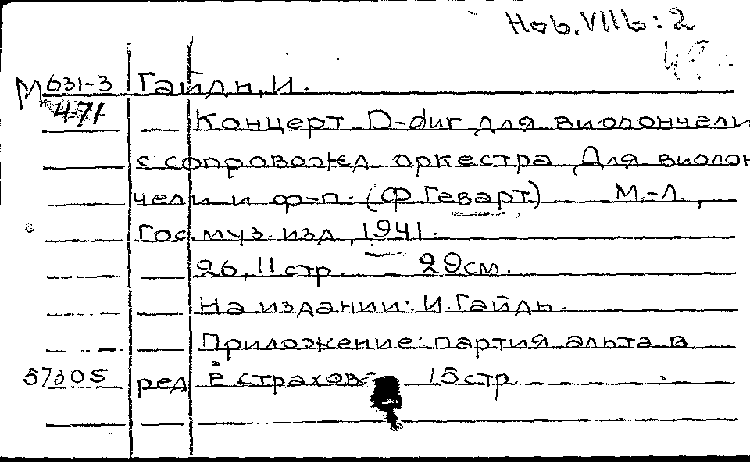 Hob. VIIb: 2
М 631-3 Гайдн, И.
471
Концерт D-dur для виолончели
с сопровожд. оркестра. Для виолон
чели и ф-п. (Ф. Геварт) М.-Л.,
Гос. муз. изд., 1941.
26, 11 стр. 29 см.
На издании: И. Гайдн.
Приложение: партия альта в
ред. Е. Страхов 15 стр.